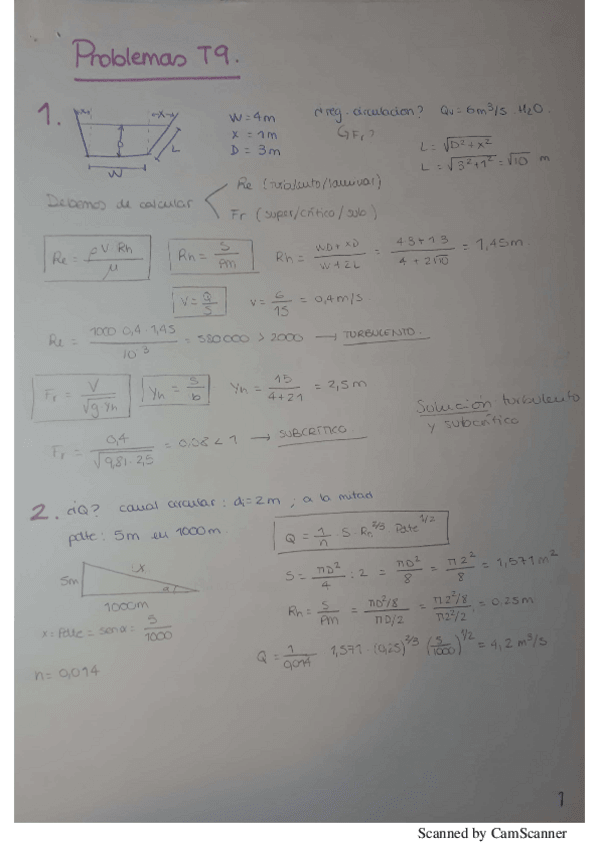 Problemas T9.
1.
x
x
D
L
W
W = 4m
x = 1m
D = 3m
reg. circulacion? Qv = 6m³/s H2O.
↳ Fr?
L = √D² + x²
L = √3² + 1² = √10 m
Debemos de calcular
Re (turbulento/laminar)
Fr (super/crítico/sub)
Re = ρ V Rh / μ
Rh = S / Pm
Rh = WD + XD / W + 2L = 4·3 + 1·3 / 4 + 2√10 = 1,45m
V = Q / S
V = 6 / 15 = 0,4m/s
Re = 1000·0,4·1,45 / 10⁻³ = 580000 > 2000 → TURBULENTO.
Fr = V / √g·Yh
Yh = S / b
Yh = 15 / 4+2·1 = 2,5m
Fr = 0,4 / √9,81·2,5 = 0,08 < 1 → SUBCRÍTICO
Solución: turbulento
y subcrítico
2. ¿Q? canal circular: di = 2m, a la mitad
pdte: 5m en 1000m.
Q = 1/n · S · Rh^2/3 Pdte^1/2
5m
x
α
1000m
S = πD²/4 : 2 = πD²/8 = π2²/8 = 1,571m²
x: Pdte = senα = 5/1000
n = 0,014
Q = 1/0,014 1,571·(0,25)^2/3 (5/1000)^1/2 = 4,2m³/s
1
Scanned by CamScanner